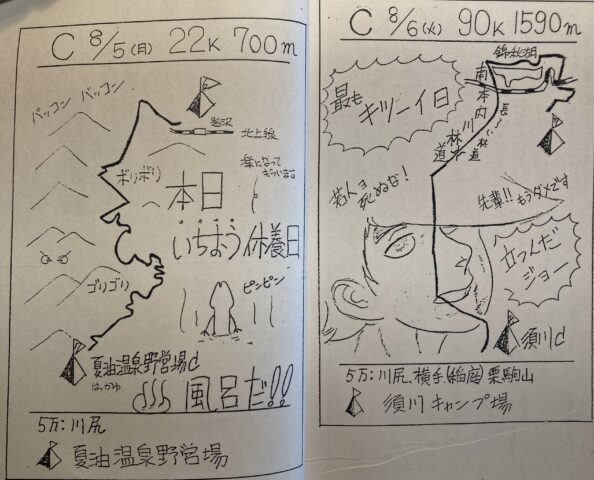 C 8/5(月) 22K 700m
バッコン バッコン
岩沢
北上線
楽になって
もらいます。
ボリボリ
本日
いちおう休養日
ピンピン
ゴリゴリ
夏油温泉野営場d
風呂だ!!
5万:川尻
夏油温泉野営場
C 8/6(火) 90K 1590m
錦秋湖
最も
キツーイ日
南本内川林道
長い〜林道
若人ョ
死ぬな!
先輩!!もうダメです
立つんだ
ジョー
須川d
5万:川尻 横手(稲庭)栗駒山
須川キャンプ場